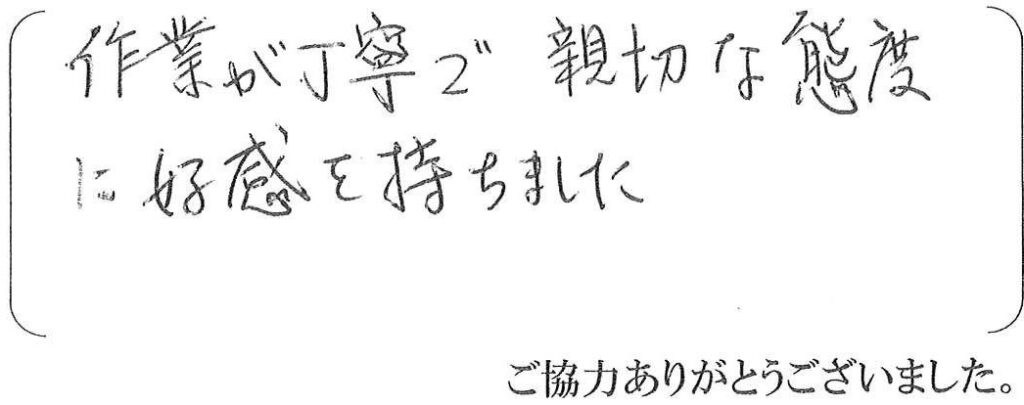 作業が丁寧で 親切な態度
に好感を持ちました
ご協力ありがとうございました。